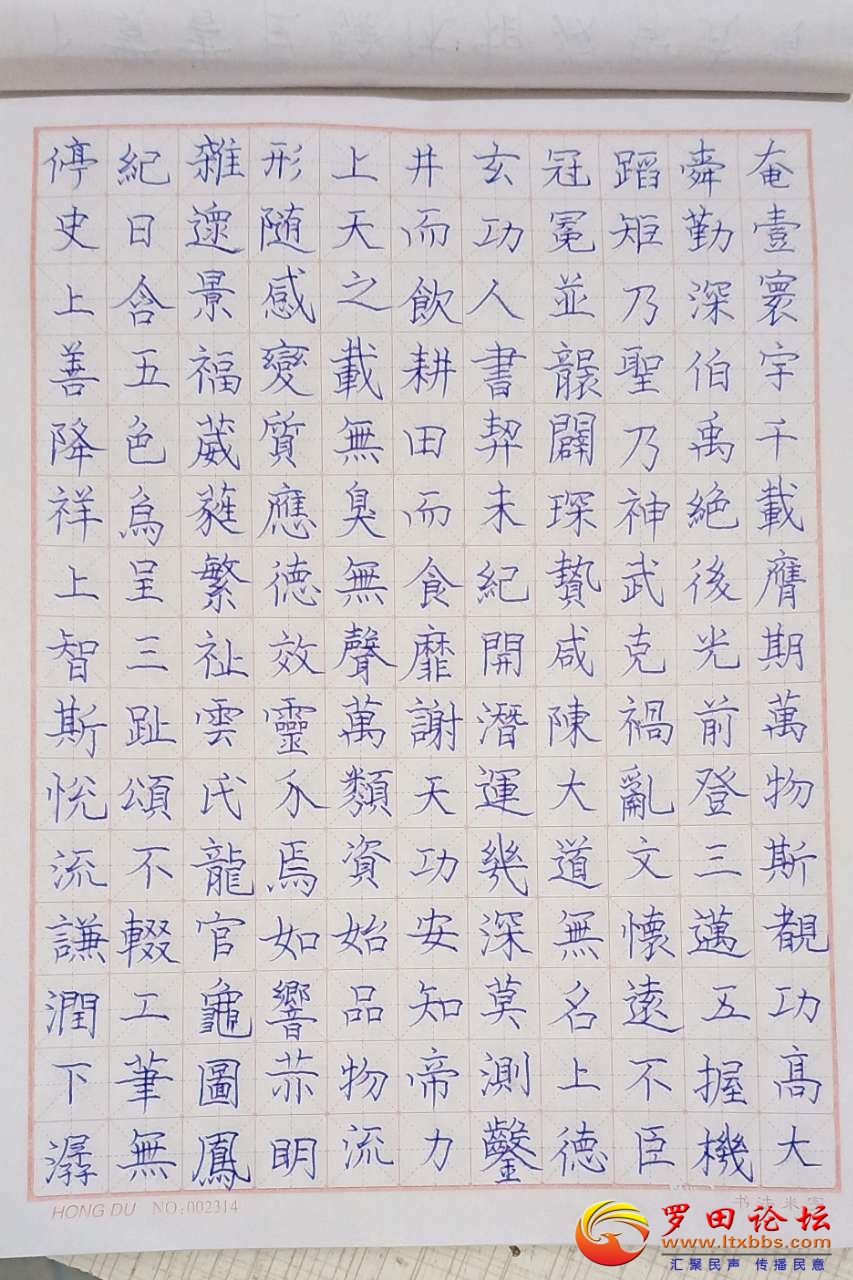 奄壹寰宇千載膺期萬物斯覩功高大
舜勤深伯禹絶後光前登三邁五握機
蹈矩乃聖乃神武克禍亂文懷遠不臣
冠冕並闢琛贄咸陳大道無名上德
玄功人書契未紀開潛運幾深莫測鑿
井而飲耕田而食靡謝天功安知帝力
上天之載無臭無聲萬類資始品物流
形随感變質應德效靈介焉如響明
雜遝景福葳蕤繁祉雲氏龍官龜圖鳳
紀日含五色烏呈三趾頌不輟工筆無
停史上善降祥上智斯悅流謙潤下潺
HONG DU NO:002314
罗田论坛
www.ltxbbs.com
汇聚民声 传播民意